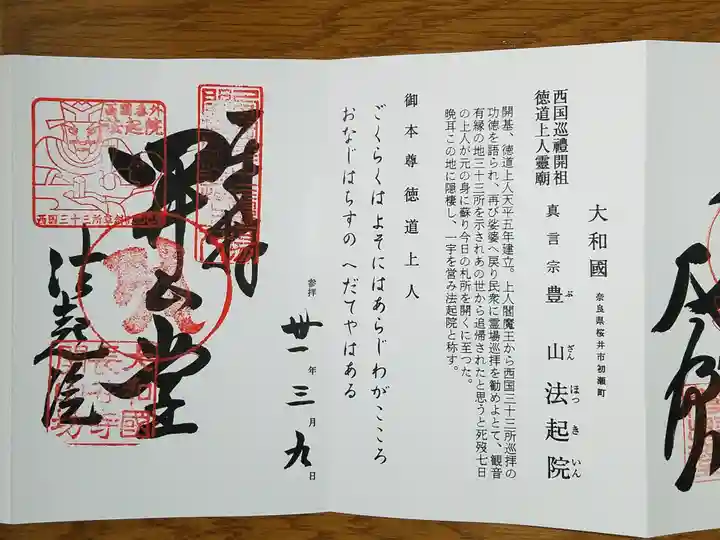 大和國
奈良県桜井市初瀬町
真言宗 豊山 法起院
ぶ ざん ほっ き いん
西国巡禮開祖
徳道上人霊廟
開基、徳道上人天平五年建立。上人閻魔王から西国三十三所巡拝の
功徳を語られ、再び娑婆へ戻り民衆に霊場巡拝を勧めよとて、観音
有縁の地三十三所を示されあの世から追帰されたと思うと死歿七日
の上人が元の身に蘇り今日の札所を開くに至つた。
晩年この地に隠棲し、一宇を営み法起院と称す。
御本尊徳道上人
ごくらくは よそにはあらじわがこころ
おなじはちすの へだてやはある
参拝 廿一年三月九日
開山堂
法起院
西国番外
法起院